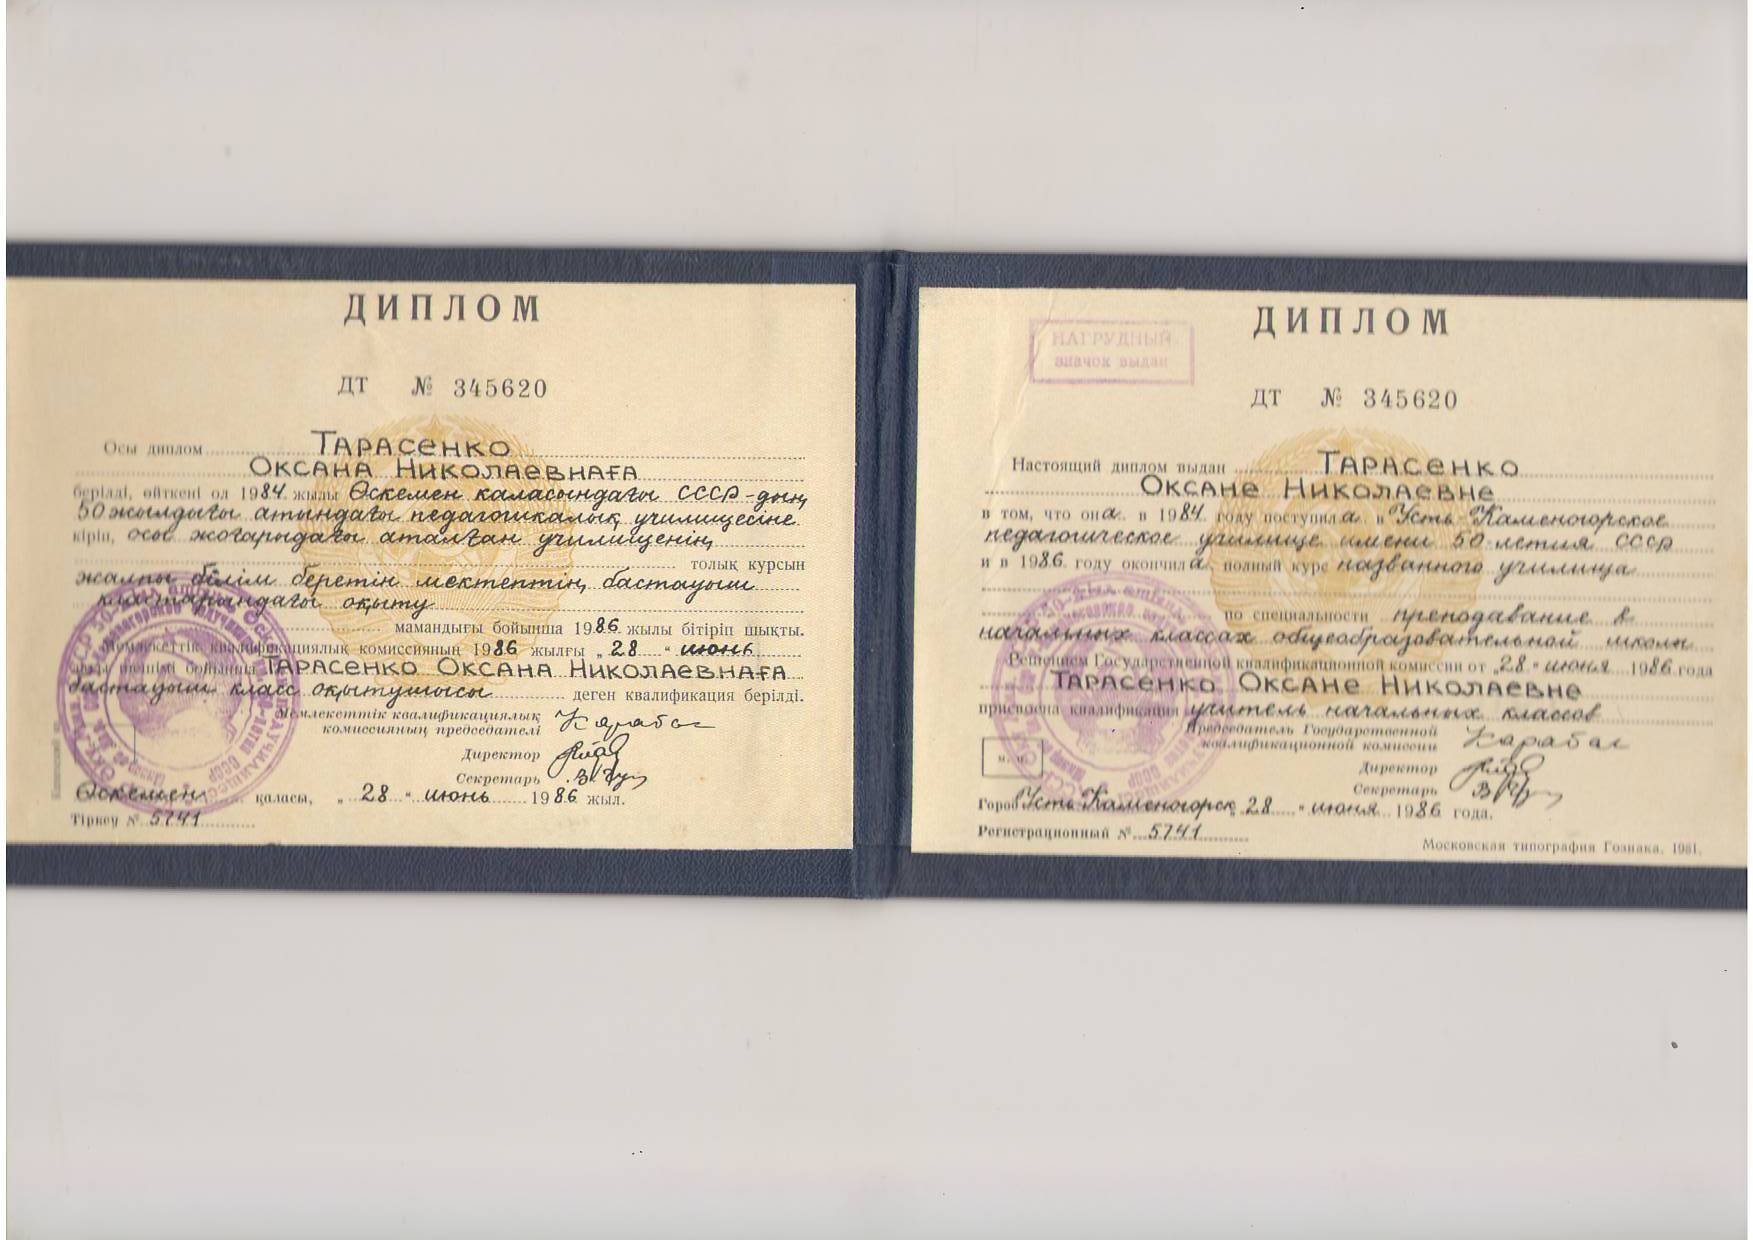 ДИПЛОМ
ДТ № 345620
Осы диплом ТАРАСЕНКО
ОКСАНА НИКОЛАЕВНАҒА
берілді, өйткені ол 1984 жылы Өскемен каласындағы СССР-дың
50 жылдығы атындағы педагогикалық училищесіне
кіріп, осы жоғарыдағы аталған училищенің
толық курсын
жалпы білім беретін мектептің бастауыш
кластарындағы оқыту
мамандығы бойынша 1986 жылы бітіріп шықты.
Мемлекеттік квалификациялық комиссияның 1986 жылғы „28" июнь
шешімі бойынша ТАРАСЕНКО ОКСАНА НИКОЛАЕВНАҒА
бастауыш класс оқытушысы деген квалификация берілді.
Мемлекеттік квалификациялық
комиссияның председателі Карабас
Директор
Секретарь
Өскемен қаласы, „28" июнь 1986 жыл.
Тіркеу № 5741
НАГРУДНЫЙ
значок выдан
ДИПЛОМ
ДТ № 345620
Настоящий диплом выдан ТАРАСЕНКО
ОКСАНЕ НИКОЛАЕВНЕ
в том, что она в 1984 году поступила в Усть-Каменогорское
педагогическое училище имени 50-летия СССР
и в 1986 году окончила полный курс названного училища
по специальности преподавание в
начальных классах общеобразовательной школы
Решением Государственной квалификационной комиссии от „28" июня 1986 года
ТАРАСЕНКО ОКСАНЕ НИКОЛАЕВНЕ
присвоена квалификация учитель начальных классов
Председатель Государственной
квалификационной комиссии Карабас
Директор
Секретарь
м. п.
Город Усть-Каменогорск „28" июня 1986 года.
Регистрационный № 5741
Московская типография Гознака. 1981.